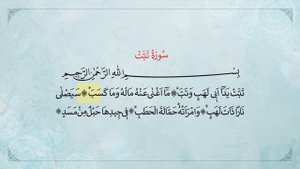 سُورَةُ تَبَّتْ
بِسْمِ اللهِ الرَّحْمٰنِ الرَّحِيمِ
تَبَّتْ يَدَٓا اَبٖي لَهَبٍ وَتَبَّ ﴿﴾ مَٓا اَغْنٰى عَنْهُ مَالُهُ وَمَا كَسَبَ ﴿﴾ سَيَصْلٰى
نَارًا ذَاتَ لَهَبٍ ﴿﴾ وَامْرَاَتُهُ حَمَّالَةَ الْحَطَبِ ﴿﴾ فٖي جٖيدِهَا حَبْلٌ مِنْ مَسَدٍ ﴿﴾